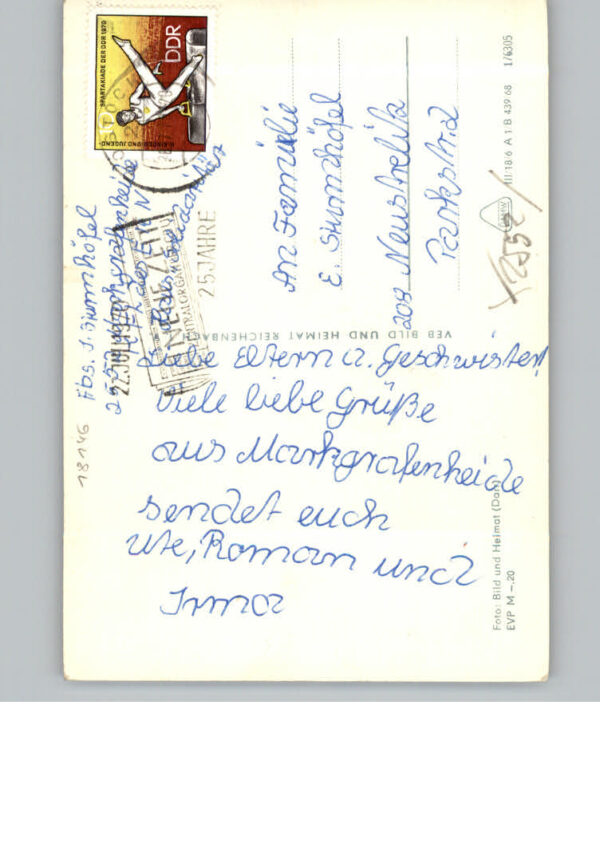 Liebe Eltern u. Geschwister!
Viele liebe Grüße
aus Markgrafenheide
sendet euch
Ute, Roman und
Irma
An Familie
E. Stumhöfel
208 Neustrelitz
Parkstr. 2
Abs. I. Stumhöfel
2552 Markgrafenheide
18146
SPARTAKIADE DER DDR 1970
DDR
KINDER- UND JUGEND-
NEUE ZEIT
ZENTRALORGAN DER CDU
25 JAHRE
22. JULI
VEB BILD UND HEIMAT REICHENBACH
III/18/6 A 1 B 439 68 1/6305
Foto: Bild und Heimat (Dan)
EVP M –.20